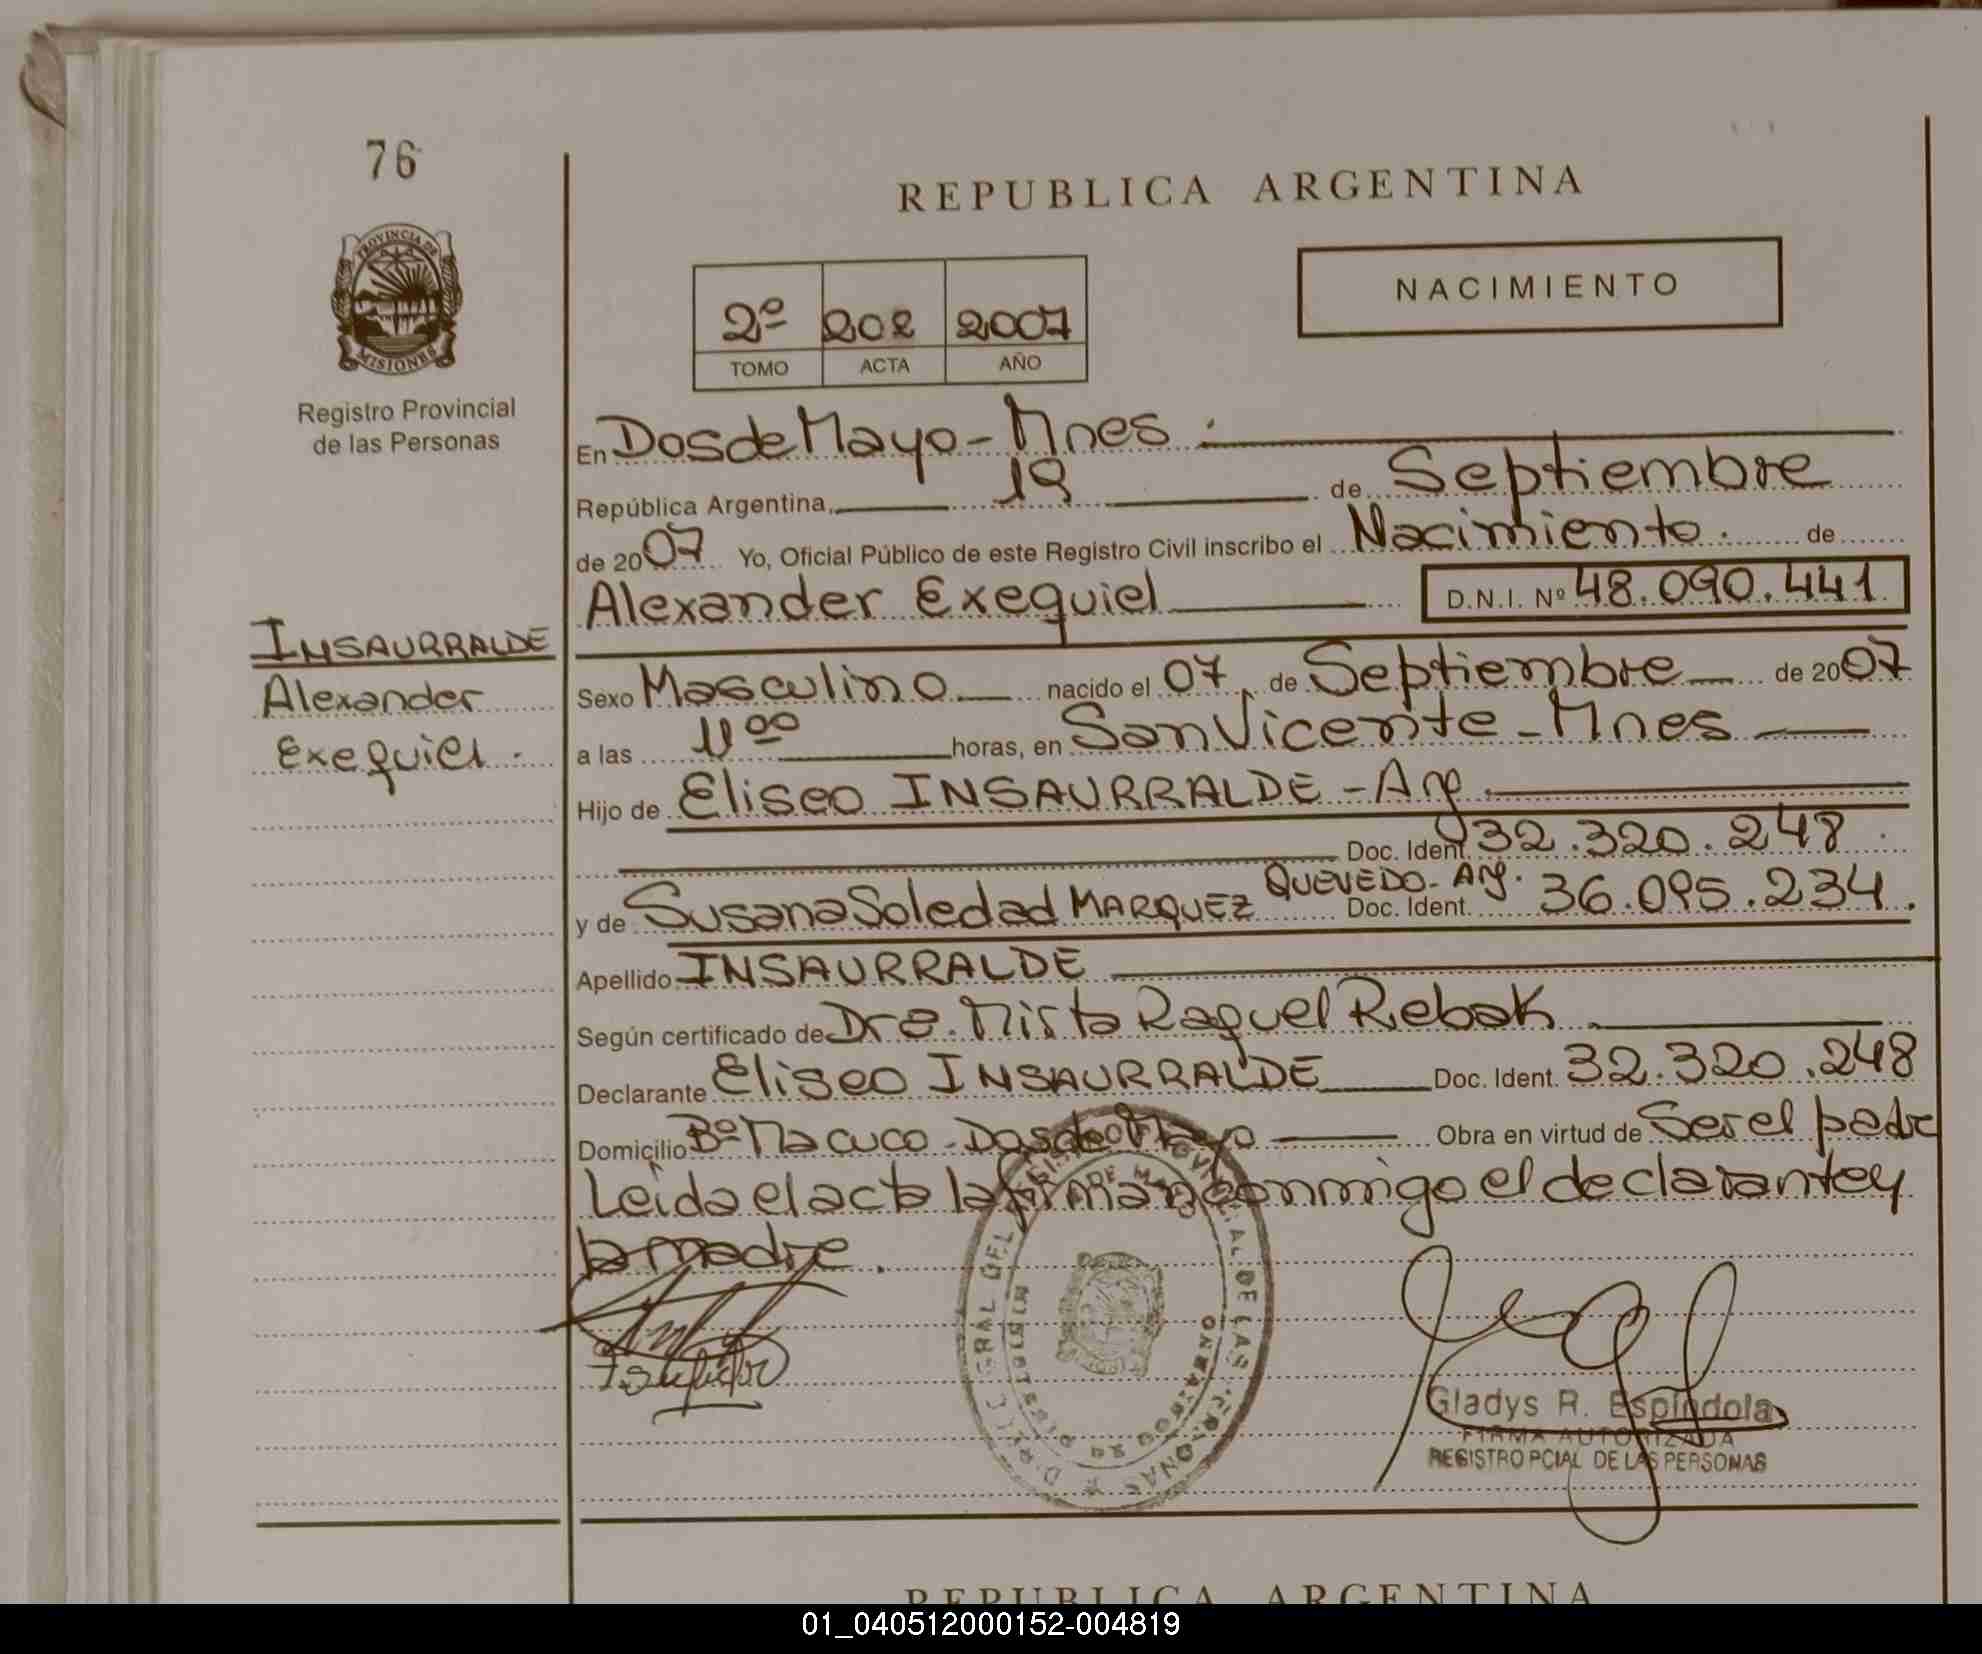 76
REPUBLICA ARGENTINA
PROVINCIA DE
MISIONES
Registro Provincial
de las Personas
2º 202 2007
TOMO ACTA AÑO
NACIMIENTO
En Dos de Mayo - Mnes.
República Argentina, 19 de Septiembre
de 2007 Yo, Oficial Público de este Registro Civil inscribo el Nacimiento. de
Alexander Exequiel D.N.I. Nº 48.090.441
INSAURRALDE
Alexander
Exequiel.
Sexo Masculino nacido el 07 de Septiembre de 2007
a las 11 00 horas, en San Vicente - Mnes
Hijo de Eliseo INSAURRALDE - Arg.
Doc. Ident. 32.320.248
y de Susana Soledad MARQUEZ QUEVEDO - Arg. Doc. Ident. 36.095.234.
Apellido INSAURRALDE
Según certificado de Dra. Mirta Raquel Rebak
Declarante Eliseo INSAURRALDE Doc. Ident. 32.320.248
Domicilio Bº Macuco - Dos de Mayo Obra en virtud de Ser el padre
Leida el acta la firman conmigo el declarante y
la madre.
Gladys R. Espíndola
FIRMA AUTORIZADA
REGISTRO PCIAL DE LAS PERSONAS
REPUBLICA ARGENTINA
01_040512000152-004819